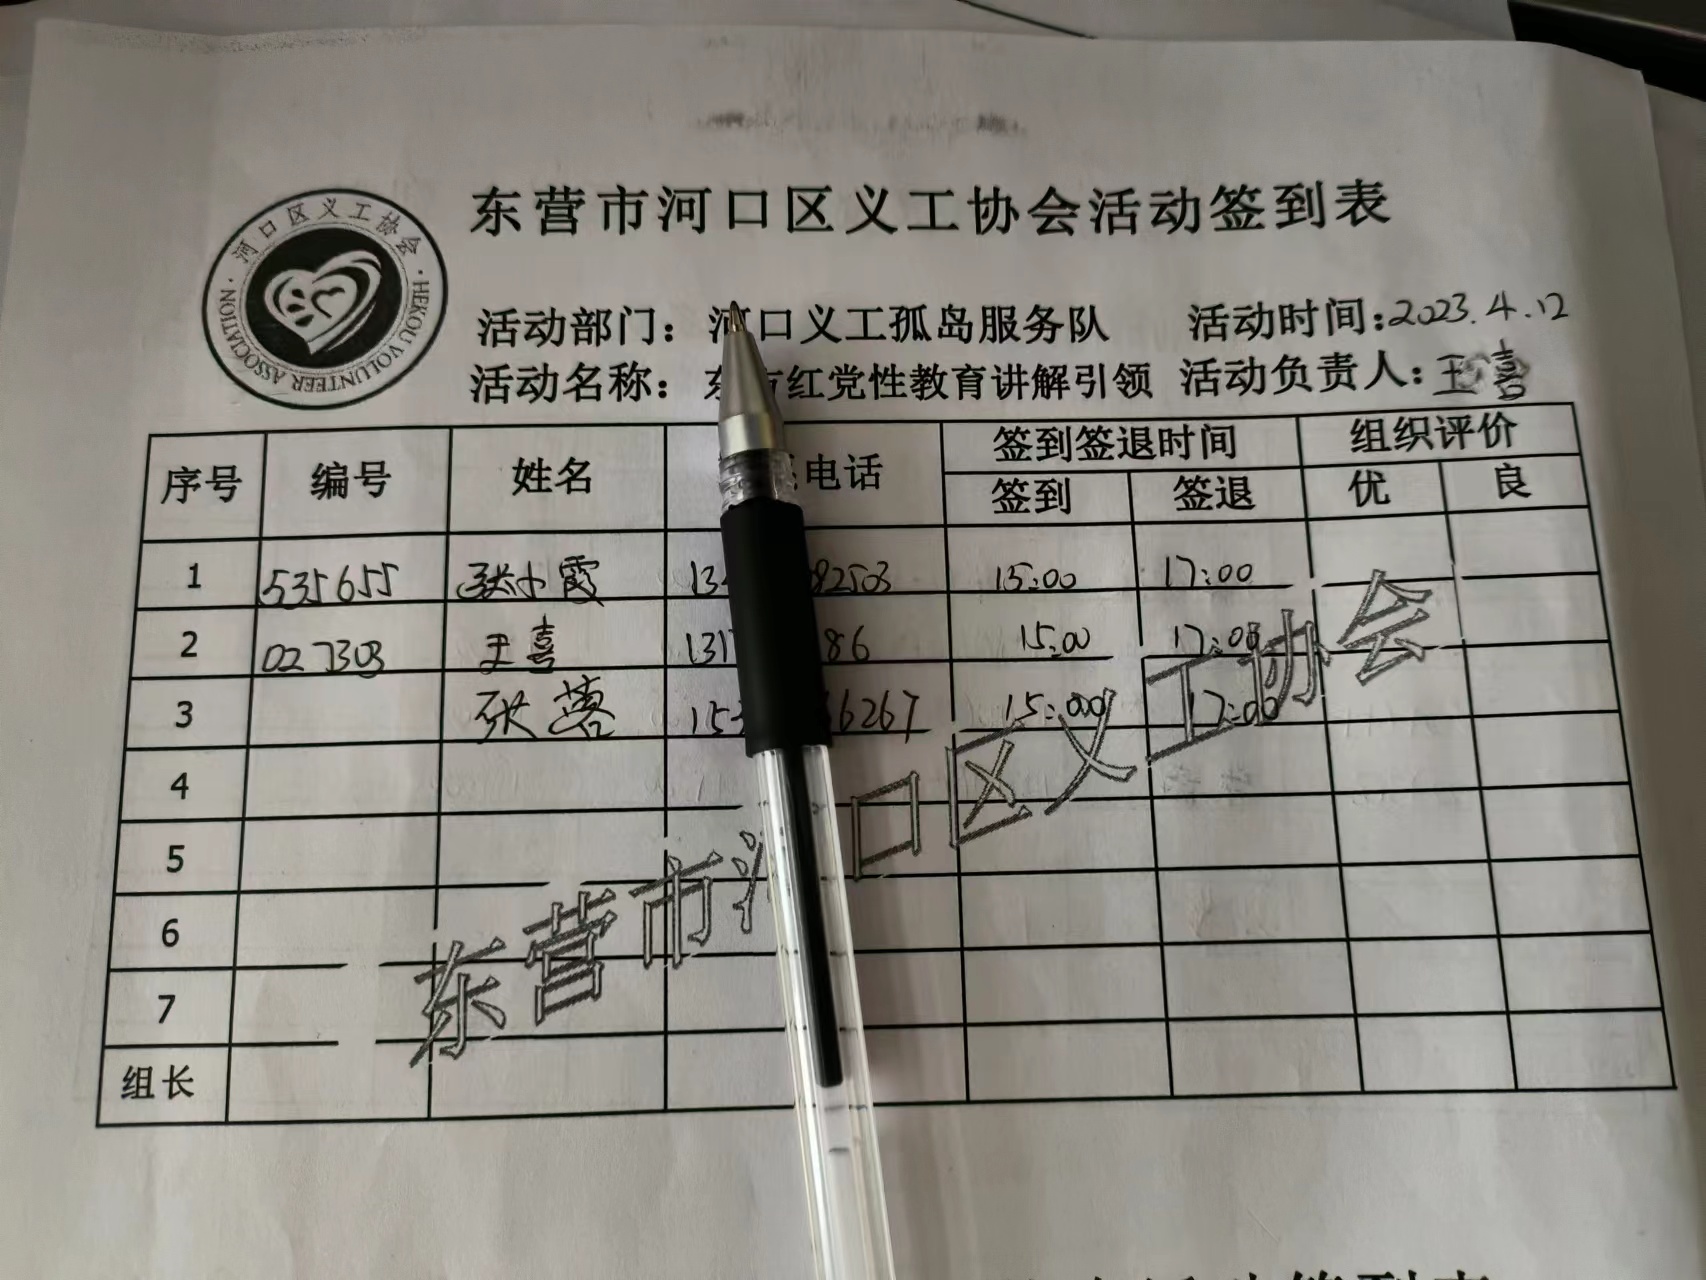 东营市河口区义工协会活动签到表
河口区义工协会
HEKOU VOLUNTEER ASSOCIATION
活动部门：河口义工孤岛服务队 活动时间：2023.4.12
活动名称：东方红党性教育讲解引领 活动负责人：王喜
序号 编号 姓名 电话 签到签退时间 组织评价
签到 签退 优 良
1 535655 张小霞 13 82503 15:00 17:00
2 027303 王喜 131 86 15:00 17:00
3 张蓉 15 6267 15:00 17:00
4
5
6
7
组长
东营市河口区义工协会